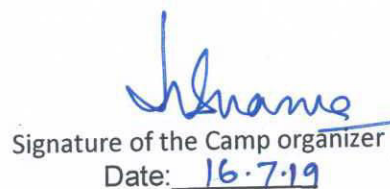 Signature of the Camp organizer
Date: 16.7.19